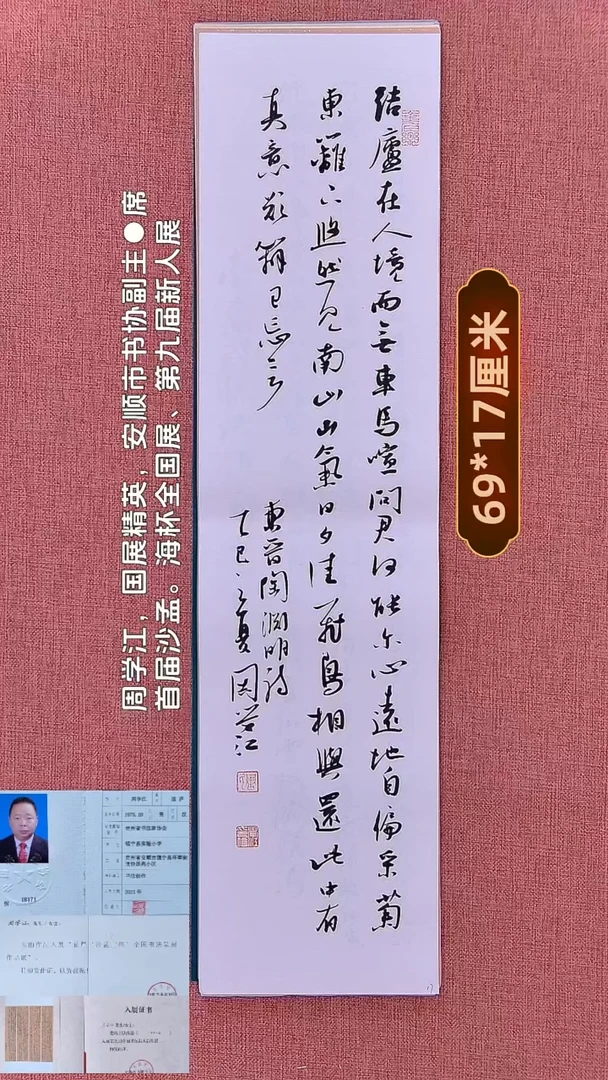 结廬在人境而無車馬喧問君何能尔心遠地自偏采菊
東籬下悠然見南山山氣日夕佳飛鳥相與還此中有
真意欲辨已忘言
東晋陶渊明詩
乙巳之夏周学江
周学江，国展精英，安顺市书协副主●席
首届沙孟。海杯全国展、第九届新人展
69*17厘米
入展证书